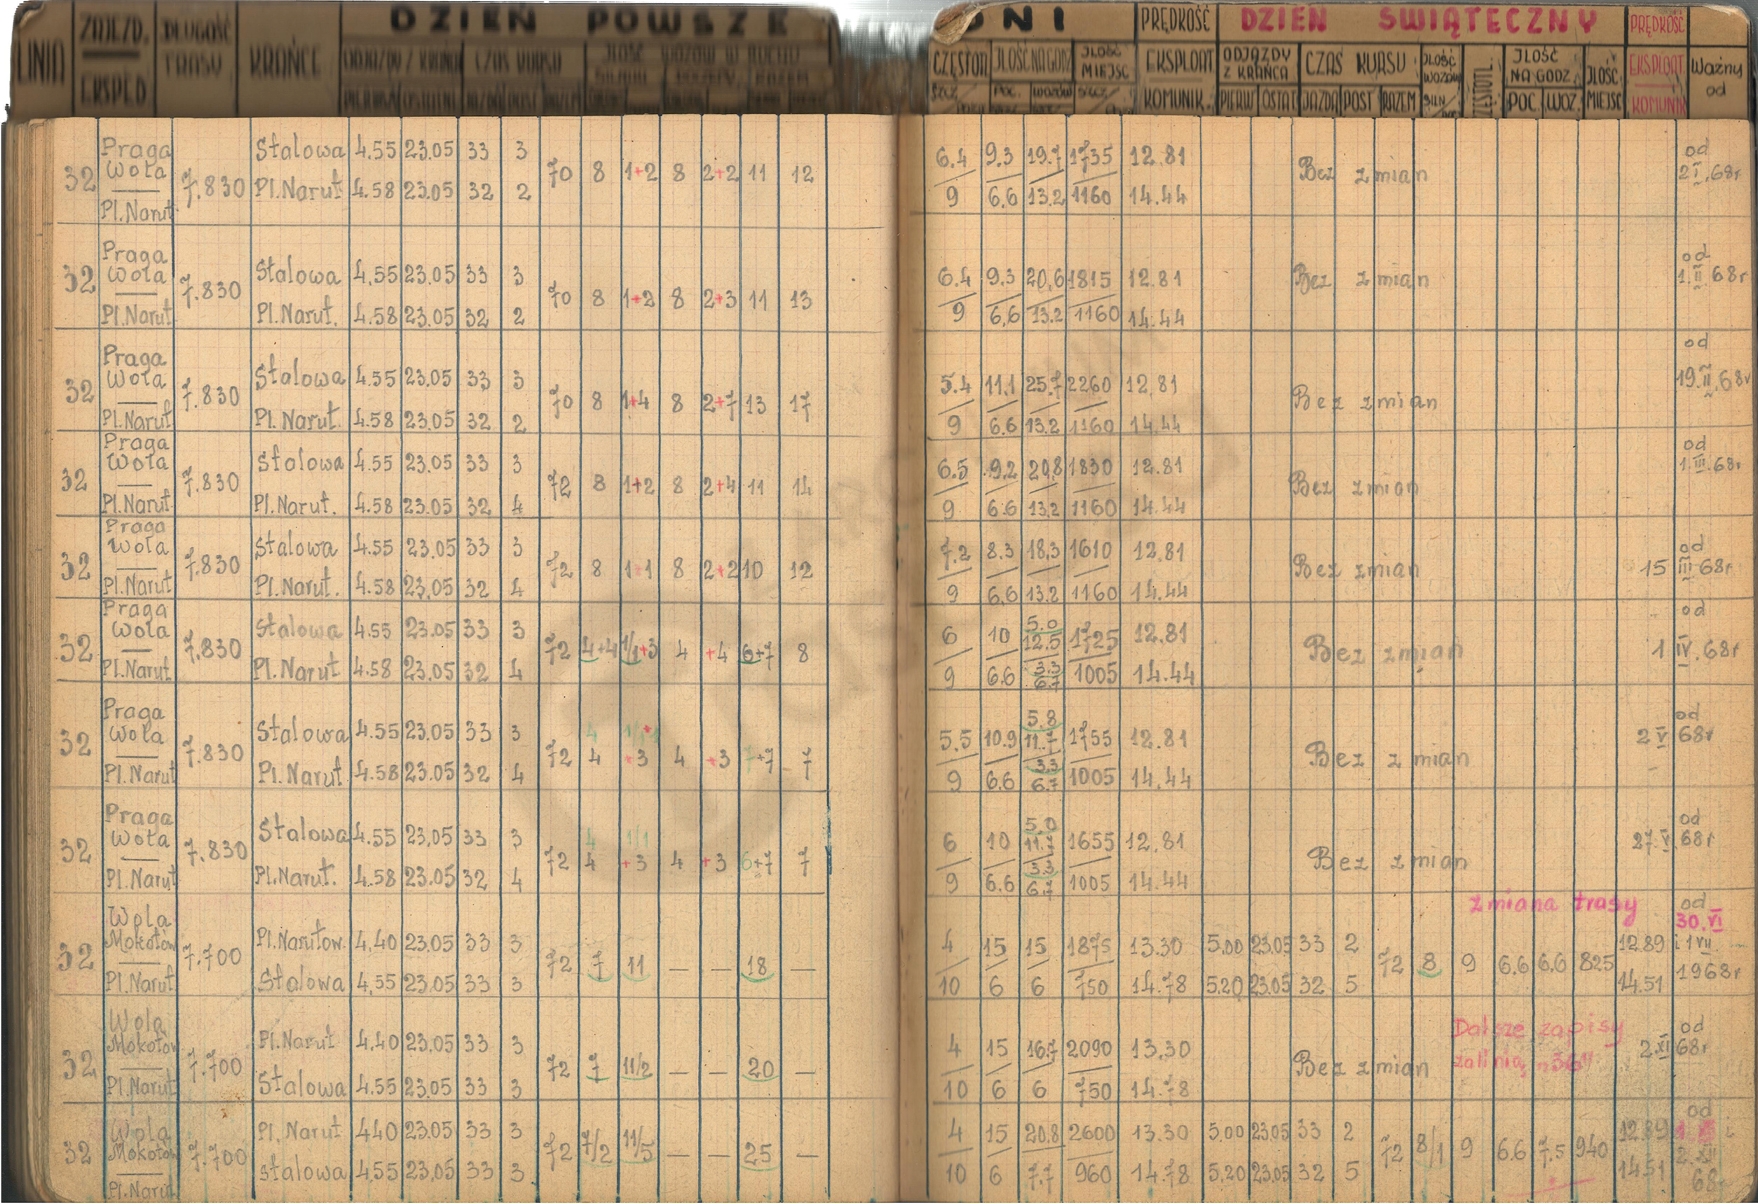 LINIA ZAJEZD. EKSPED DŁUGOŚĆ TRASY KRAŃCE DZIEŃ POWSZE DNI PRĘDKOŚĆ EKSPLOAT KOMUNIK. DZIEŃ ŚWIĄTECZNY PRĘDKOŚĆ EKSPLOAT. KOMUNIK Ważny od
ODJAZDY Z KRAŃCA CZAS KURSU ILOŚĆ WOZÓW W RUCHU ILOŚĆ NA GODZ ILOŚĆ MIEJSC ODJAZDY Z KRAŃCA CZAS KURSU ILOŚĆ WOZÓW ILOŚĆ NA GODZ ILOŚĆ MIEJSC
POC. WOZÓW PIERW OSTAT JAZDA POST RAZEM POC. WOZ.
Praga Stalowa 4.55 23.05 33 3 6.4 9.3 19.7 1735 12.81 od
32 Wola 7.830 70 8 1+2 8 2+2 11 12 Bez zmian 2 I.68r
Pl.Narut Pl.Narut 4.58 23.05 32 2 9 6.6 13.2 1160 14.44
Praga od
32 Wola 7.830 Stalowa 4.55 23.05 33 3 70 8 1+2 8 2+3 11 13 6.4 9.3 20,6 1815 12.81 Bez zmian 1.II.68r
Pl.Narut Pl.Narut. 4.58 23.05 32 2 9 6,6 13.2 1160 14.44
Praga od
32 Wola 7.830 Stalowa 4.55 23.05 33 3 70 8 1+4 8 2+7 13 17 5.4 11,1 25.7 2260 12,81 Bez zmian 19.II.68r
Pl.Narut Pl.Narut. 4.58 23.05 32 2 9 6.6 13.2 1160 14.44
Praga od
32 Wola 7.830 Stalowa 4.55 23.05 33 3 72 8 1+2 8 2+4 11 14 6.5 9,2 20,8 1830 12.81 Bez zmian 1.III.68r
Pl.Narut Pl.Narut. 4.58 23.05 32 4 9 6.6 13,2 1160 14.44
Praga od
32 Wola 7.830 Stalowa 4.55 23.05 33 3 72 8 1+1 8 2+2 10 12 7.2 8.3 18,3 1610 12.81 Bez zmian 15 III 68r
Pl.Narut Pl.Narut. 4.58 23,05 32 4 9 6,6 13.2 1160 14.44
Praga 5.0 od
32 Wola 7.830 Stalowa 4.55 23.05 33 3 72 4+4 1/1+3 4 +4 6+7 8 6 10 12.5 1725 12.81 Bez zmian 1 IV.68r
Pl.Narut Pl.Narut 4.58 23.05 32 4 9 6.6 3.3 6.7 1005 14.44
Praga 5.8 od
32 Wola 7.830 Stalowa 4.55 23.05 33 3 72 4 4 1/1+ +3 4 +3 7+7 7 5.5 10.9 11.7 1755 12.81 Bez zmian 2 V 68r
Pl.Narut Pl.Narut 4.58 23.05 32 4 9 6.6 3.3 6.7 1005 14.44
Praga 5.0 od
32 Wola 7.830 Stalowa 4.55 23.05 33 3 72 4 4 1/1 +3 4 +3 6+7 7 6 10 11.7 1655 12.81 Bez zmian 27.V.68r
Pl.Narut Pl.Narut. 4.58 23.05 32 4 9 6.6 3.3 6.7 1005 14.44
Wola zmiana trasy od 30.VI
32 Mokotów 7.700 Pl.Narutow. 4,40 23.05 33 3 72 7 11 — — 18 — 4 15 15 1875 13.30 5.00 23.05 33 2 72 8 9 6.6 6.6 825 12.89 i 1 VII
Pl.Narut Stalowa 4,55 23.05 33 3 10 6 6 750 14.78 5.20 23.05 32 5 14.51 1968r
Wola Dalsze zapisy od
32 Mokotów 7.700 Pl.Narut 4.40 23.05 33 3 72 7 11/2 — — 20 — 4 15 16.7 2090 13.30 Bez zmian za linią "36" 2.XI 68r
Pl.Narut Stalowa 4.55 23.05 33 3 10 6 6 750 14.78
Wola od
32 Mokotów 7.700 Pl.Narut 4.40 23.05 33 3 72 7/2 11/5 — — 25 — 4 15 20.8 2600 13.30 5.00 23.05 33 2 72 8/1 9 6.6 7.5 940 12.89 i
Pl.Narut Stalowa 4.55 23.05 33 3 10 6 7.7 960 14.78 5.20 23.05 32 5 14.51 2.XII 68r